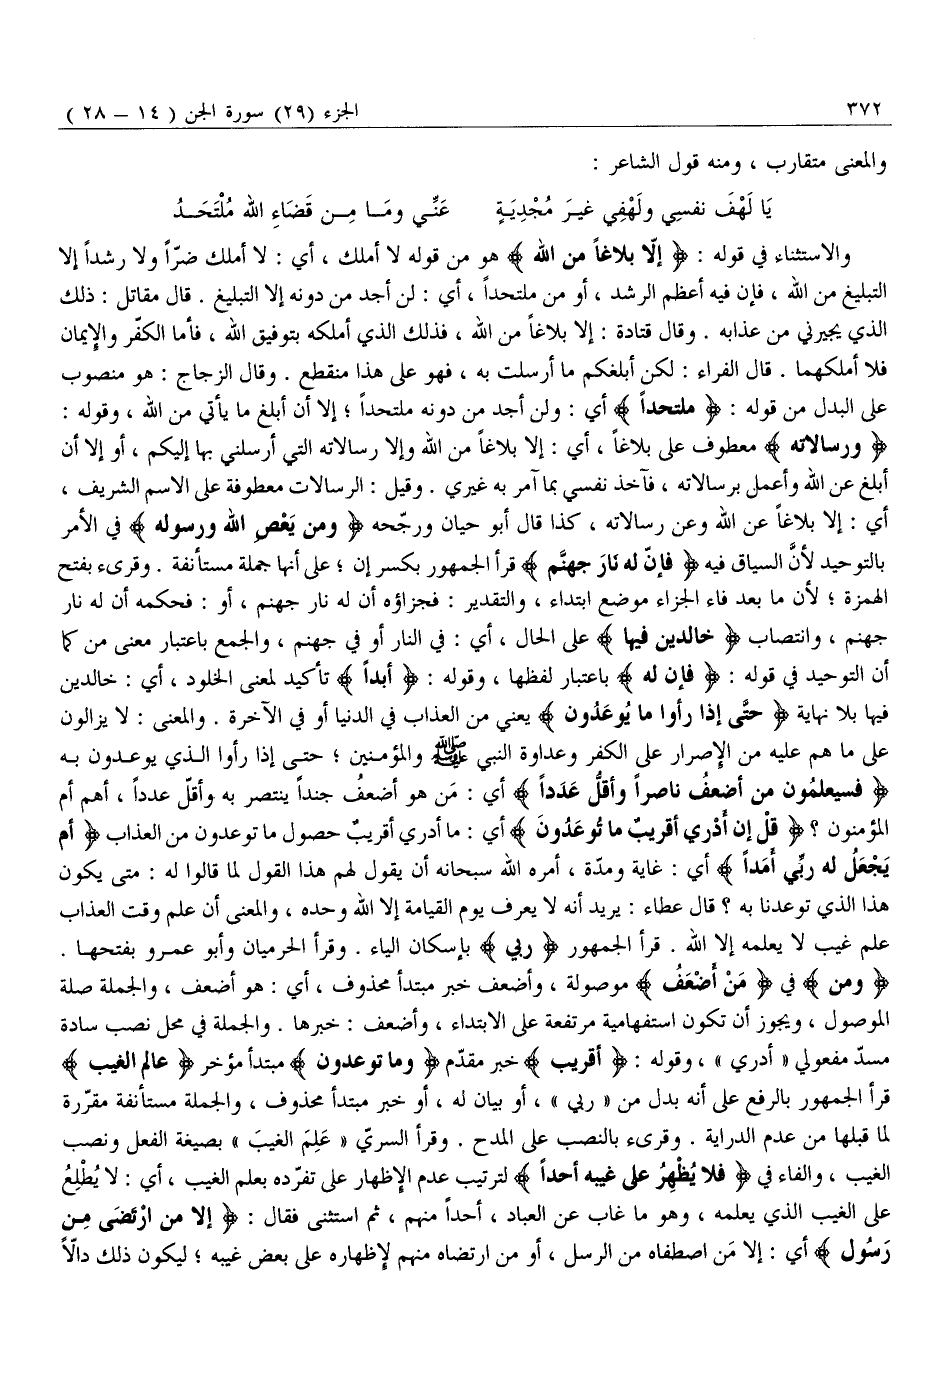 ٣٧٢ الجزء (٢٩) سورة الجن ( ١٤ – ٢٨ )
والمعنى متقارب ، ومنه قول الشاعر :
يَا لَهْفَ نفسِي ولَهْفِي غيرَ مُجْدِيَةٍ عَنِّي ومَا مِن قَضَاءِ الله مُلْتَحَدُ
والاستثناء في قوله : ﴿ إلّا بلاغاً من الله ﴾ هو من قوله لا أملك ، أي : لا أملك ضرّاً ولا رشداً إلا
التبليغ من الله ، فإن فيه أعظم الرشد ، أو من ملتحداً ، أي : لن أجد من دونه إلا التبليغ . قال مقاتل : ذلك
الذي يجيرني من عذابه . وقال قتادة : إلا بلاغاً من الله ، فذلك الذي أملكه بتوفيق الله ، فأما الكفر والإيمان
فلا أملكهما . قال الفراء : لكن أبلغكم ما أرسلت به ، فهو على هذا منقطع . وقال الزجاج : هو منصوب
على البدل من قوله : ﴿ ملتحداً ﴾ أي : ولن أجد من دونه ملتحداً ؛ إلا أن أبلغ ما يأتي من الله ، وقوله :
﴿ ورسالاته ﴾ معطوف على بلاغاً ، أي : إلا بلاغاً من الله وإلا رسالاته التي أرسلني بها إليكم ، أو إلا أن
أبلغ عن الله وأعمل برسالاته ، فآخذ نفسي بما آمر به غيري . وقيل : الرسالات معطوفة على الاسم الشريف ،
أي : إلا بلاغاً عن الله وعن رسالاته ، كذا قال أبو حيان ورجّحه ﴿ ومن يَعْصِ الله ورسوله ﴾ في الأمر
بالتوحيد لأنَّ السياق فيه ﴿ فإنّ له نَارَ جهنَّم ﴾ قرأ الجمهور بكسر إن ؛ على أنها جملة مستأنفة . وقرىء بفتح
الهمزة ؛ لأن ما بعد فاء الجزاء موضع ابتداء ، والتقدير : فجزاؤه أن له نار جهنم ، أو : فحكمه أن له نار
جهنم ، وانتصاب ﴿ خالدين فيها ﴾ على الحال ، أي : في النار أو في جهنم ، والجمع باعتبار معنى من كما
أن التوحيد في قوله : ﴿ فإن له ﴾ باعتبار لفظها ، وقوله : ﴿ أبداً ﴾ تأكيد لمعنى الخلود ، أي : خالدين
فيها بلا نهاية ﴿ حتَّى إذا رأوا ما يُوعَدُون ﴾ يعني من العذاب في الدنيا أو في الآخرة . والمعنى : لا يزالون
على ما هم عليه من الإصرار على الكفر وعداوة النبي ﷺ والمؤمنين ؛ حتى إذا رأوا الذي يوعدون به
﴿ فسيعلمُون من أضعفُ ناصراً وأقلُّ عَدَداً ﴾ أي : مَن هو أضعفُ جنداً ينتصر به وأقلّ عدداً ، أهم أم
المؤمنون ؟ ﴿ قلْ إن أَدْري أقريبٌ ما تُوعَدُونَ ﴾ أي : ما أدري أقريبٌ حصول ما توعدون من العذاب ﴿ أم
يَجْعَلُ له ربِّي أَمَداً ﴾ أي : غاية ومدّة ، أمره الله سبحانه أن يقول لهم هذا القول لما قالوا له : متى يكون
هذا الذي توعدنا به ؟ قال عطاء : يريد أنه لا يعرف يوم القيامة إلا الله وحده ، والمعنى أن علم وقت العذاب
علم غيب لا يعلمه إلا الله . قرأ الجمهور ﴿ ربي ﴾ بإسكان الياء . وقرأ الحرميان وأبو عمرو بفتحها .
﴿ ومن ﴾ في ﴿ مَنْ أَضْعَفُ ﴾ موصولة ، وأضعف خبر مبتدأ محذوف ، أي : هو أضعف ، والجملة صلة
الموصول ، ويجوز أن تكون استفهامية مرتفعة على الابتداء ، وأضعف : خبرها . والجملة في محل نصب سادة
مسدّ مفعولي « أدري » ، وقوله : ﴿ أقريب ﴾ خبر مقدّم ﴿ وما توعدون ﴾ مبتدأ مؤخر ﴿ عالم الغيب ﴾
قرأ الجمهور بالرفع على أنه بدل من « ربي » ، أو بيان له ، أو خبر مبتدأ محذوف ، والجملة مستأنفة مقرّرة
لما قبلها من عدم الدراية . وقرىء بالنصب على المدح . وقرأ السريّ « عَلِمَ الغيبَ » بصيغة الفعل ونصب
الغيب ، والفاء في ﴿ فلا يُظْهِرُ على غيبه أحداً ﴾ لترتيب عدم الإظهار على تفرّده بعلم الغيب ، أي : لا يُطْلِعُ
على الغيب الذي يعلمه ، وهو ما غاب عن العباد ، أحداً منهم ، ثم استثنى فقال : ﴿ إلا من ارْتَضَى مِن
رَسُول ﴾ أي : إلا مَن اصطفاه من الرسل ، أو من ارتضاه منهم لإظهاره على بعض غيبه ؛ ليكون ذلك دالّاً